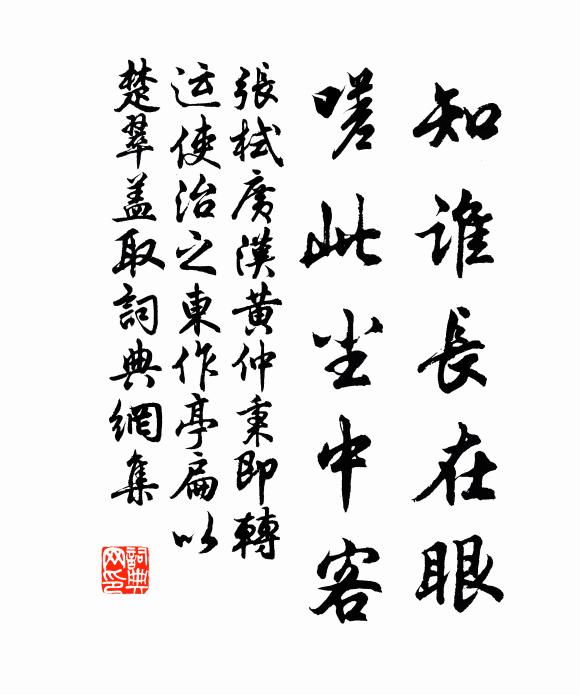 知谁長在眼
嗟此尘中客
張栻廣漢黄仲秉即轉
运使治之東作亭扁以
楚翠盖取詞典網集
詞典
网印